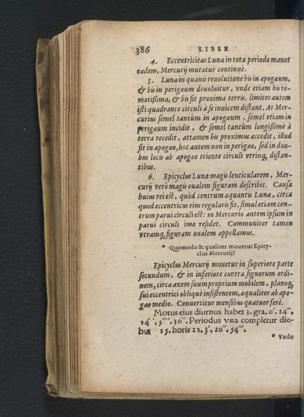 386 LIBER
4. Eccentricitas Lunæ in tota periodo manet
eadem, Mercurij mutatur continuè.
5. Luna in quauis reuolutione bis in apogæum,
& bis in perigæum deuoluitur, vnde etiam bis re-
motissima, & bis fit proxima terris, limites autem
isti quadrante circuli à se inuicem distant. At Mer-
curius semel tantùm in apogæum, semel etiam in
perigæum incidit, & semel tantùm longissimè à
terra recedit, attamen bis proximus accedit, illud
fit in apogæo, hoc autem non in perigæo, sed in duo-
bus locis ab apogæo triente circuli vtrinq; distan-
tibus.
6. Epicyclus Lunæ magis lenticularem, Mer-
curij verò magis oualem figuram describit. Causa
huius rei est, quòd centrum æquantis Lunæ, circa
quod eccentricus eius regularis fit, simul etiam cen-
trum parui circuli est: in Mercurio autem ipsum in
parui circuli imo residet. Communiter tamen
vtramq; figuram oualem appellamus.
* Quomodo & qualiter mouetur Epicy-
clus Mercurij?
Epicyclus Mercurij mouetur in superiore parte
secundum, & in inferiore contra signorum ordi-
nem, circa axem suum proprium mobilem, planoq;
sui eccentrici obliquè insistentem, æqualiter ab apo-
gæo medio. Conuertitur mensibus quatuor ferè.
Motus eius diurnus habet 3. gra. 6'. 24'',
14''', 5''''. 30'''''. Periodus vna completur die-
bus 15. horis 21. 3'. 20''. 54'''.
* Vnde